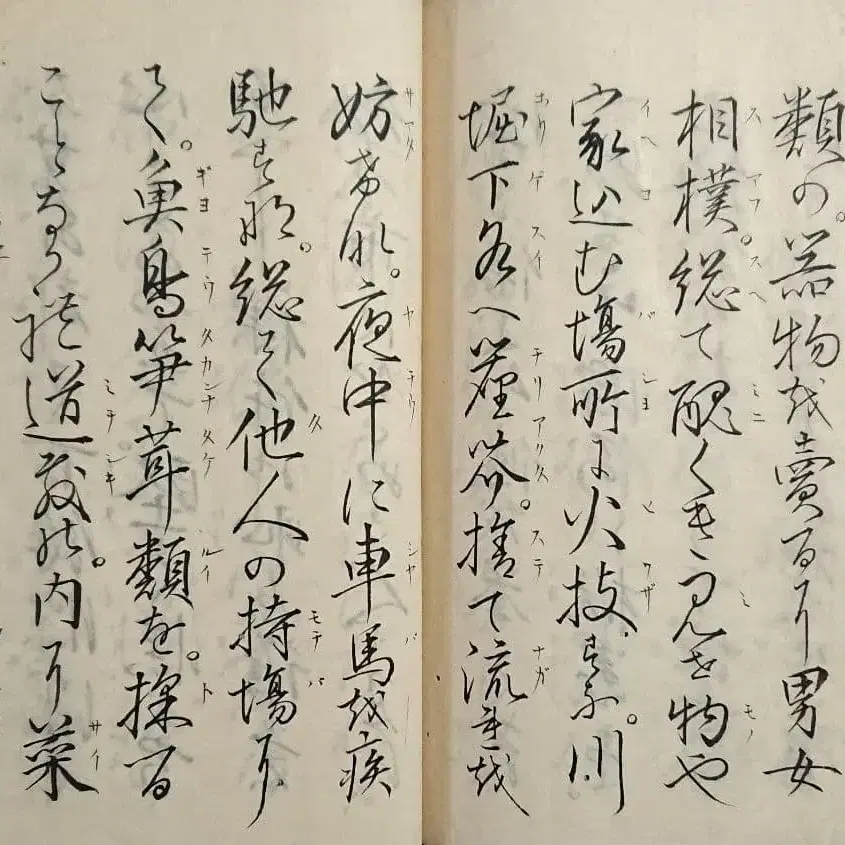 類の。器物を賣るに男女
相撲。総て醜くき見せ物や
家込む場所に火技すな。川
堀下水へ塵芥。捨て流れを
妨せ那。夜中に車馬を疾
馳すな。総て他人の持場に
て。魚鳥笋茸類を。採る
ことなかれ道敷の。内に菜